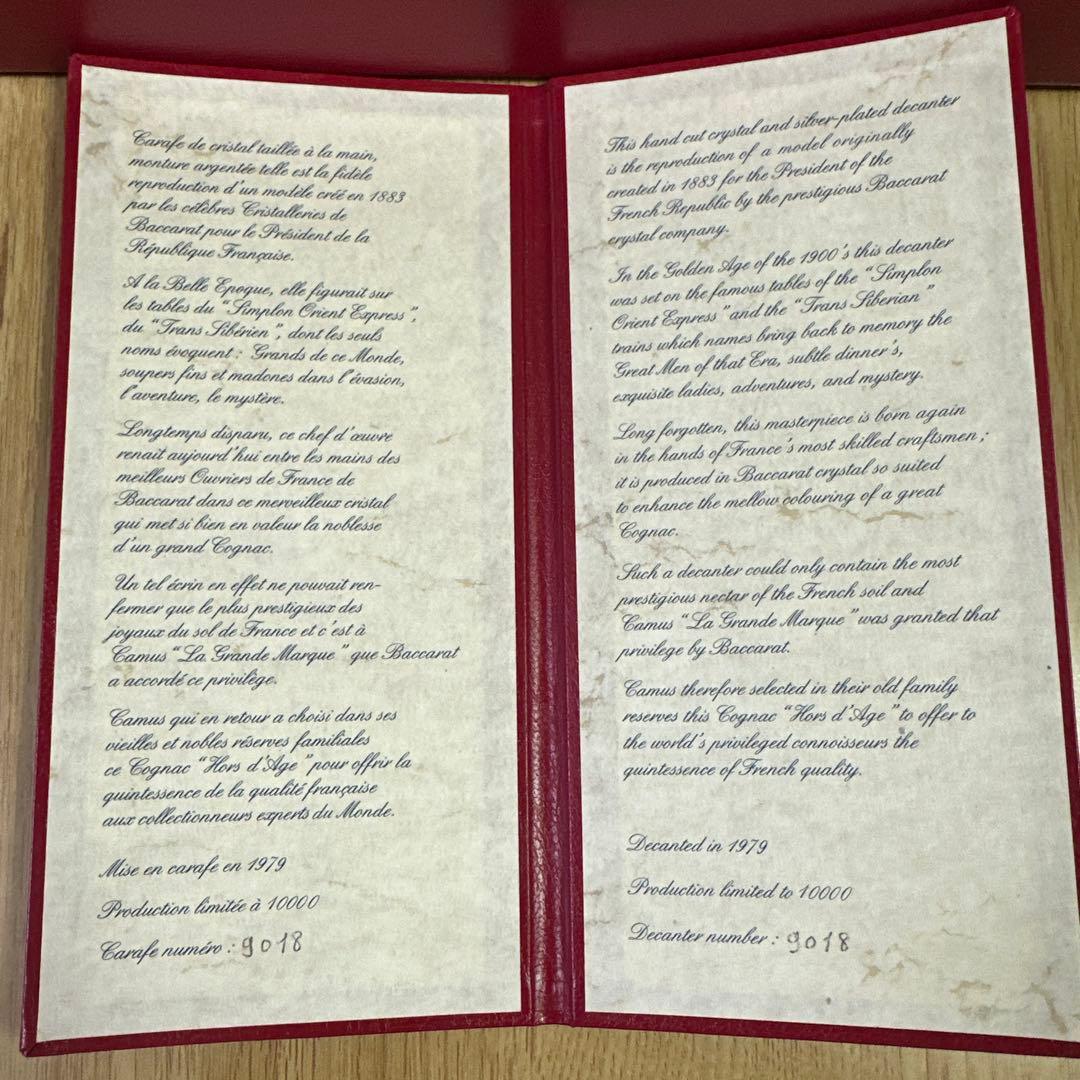 Carafe de cristal taillée à la main,
monture argentée telle est la fidèle
reproduction d'un modèle créé en 1883
par les célèbres Cristalleries de
Baccarat pour le Président de la
République Française.
A la Belle Epoque, elle figurait sur
les tables du "Simplon Orient Express",
du "Trans Sibérien", dont les seuls
noms évoquent : Grands de ce Monde,
soupers fins et madones dans l'évasion,
l'aventure, le mystère.
Longtemps disparu, ce chef d'œuvre
renait aujourd'hui entre les mains des
meilleurs Ouvriers de France de
Baccarat dans ce merveilleux cristal
qui met si bien en valeur la noblesse
d'un grand Cognac.
Un tel écrin en effet ne pouvait ren-
fermer que le plus prestigieux des
joyaux du sol de France et c'est à
Camus "La Grande Marque" que Baccarat
a accordé ce privilège.
Camus qui en retour a choisi dans ses
vieilles et nobles réserves familiales
ce Cognac "Hors d'Age" pour offrir la
quintessence de la qualité française
aux collectionneurs experts du Monde.
Mise en carafe en 1979
Production limitée à 10000
Carafe numéro : 9018
This hand cut crystal and silver-plated decanter
is the reproduction of a model originally
created in 1883 for the President of the
French Republic by the prestigious Baccarat
crystal company.
In the Golden Age of the 1900's this decanter
was set on the famous tables of the "Simplon
Orient Express" and the "Trans Siberian"
trains which names bring back to memory the
Great Men of that Era, subtle dinner's,
exquisite ladies, adventures, and mystery.
Long forgotten, this masterpiece is born again
in the hands of France's most skilled craftsmen ;
it is produced in Baccarat crystal so suited
to enhance the mellow colouring of a great
Cognac.
Such a decanter could only contain the most
prestigious nectar of the French soil and
Camus "La Grande Marque" was granted that
privilege by Baccarat.
Camus therefore selected in their old family
reserves this Cognac "Hors d'Age" to offer to
the world's privileged connoisseurs the
quintessence of French quality.
Decanted in 1979
Production limited to 10000
Decanter number : 9018